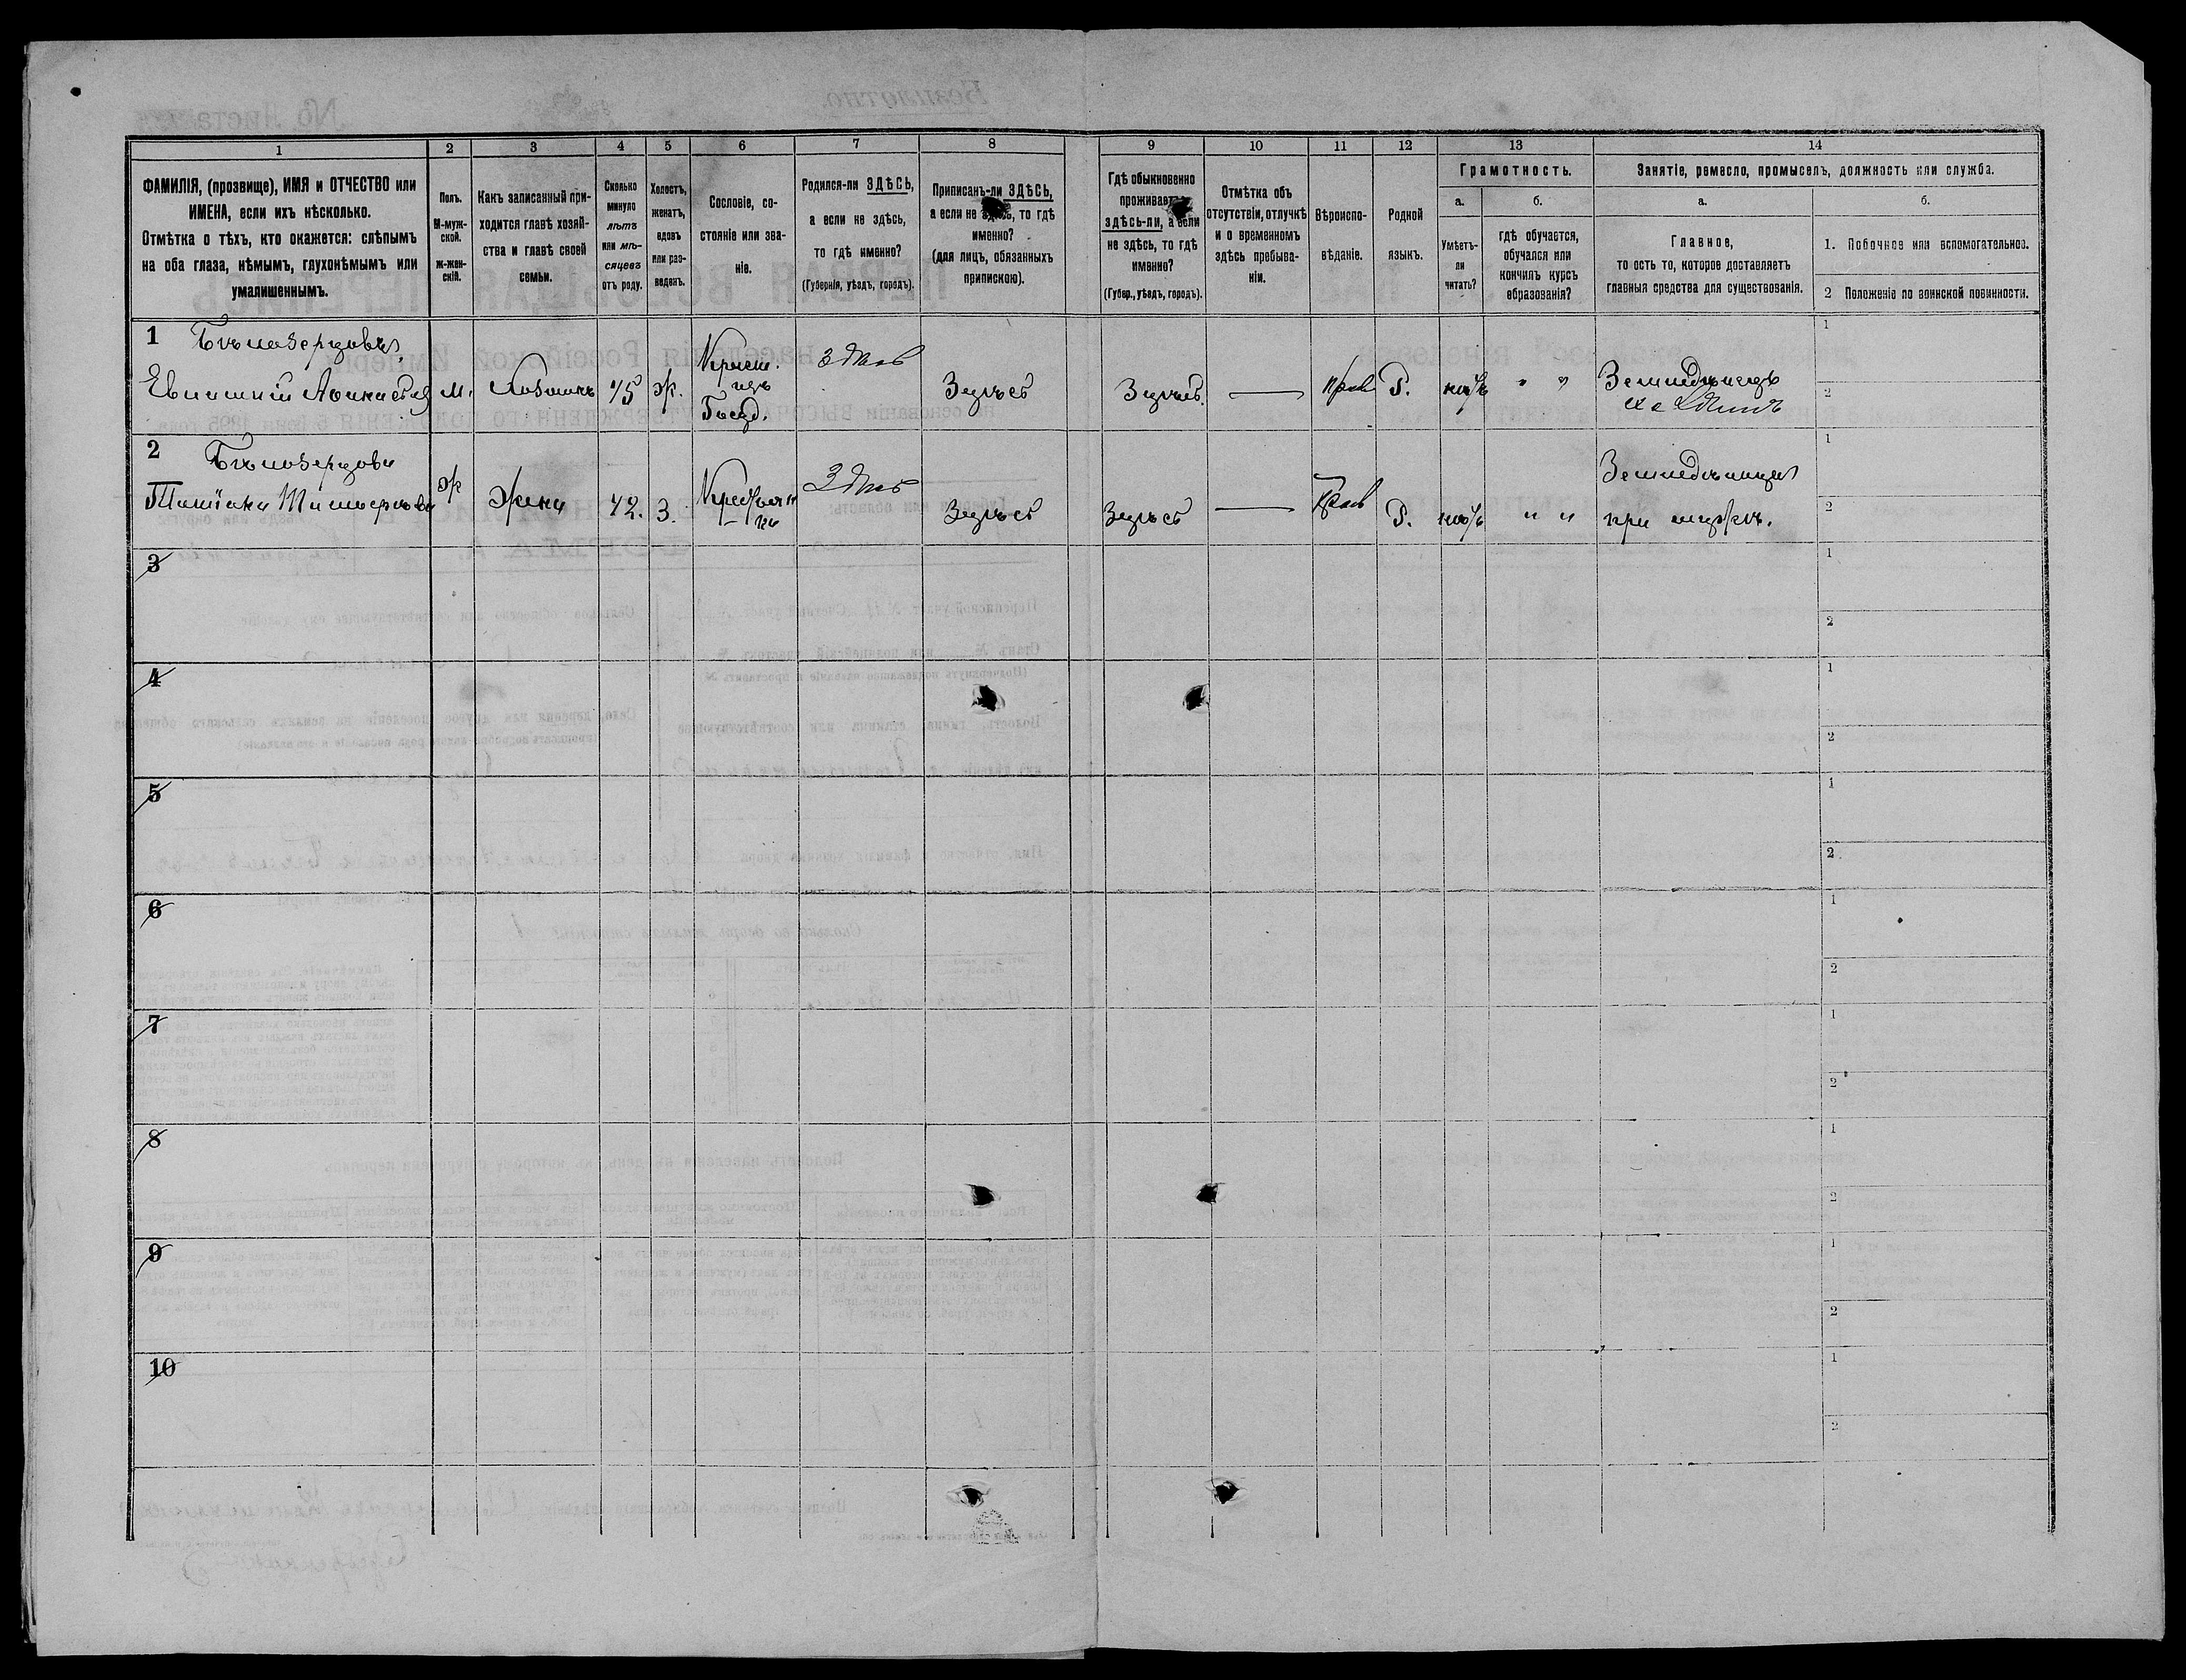 1
2
3
4
5
6
7
8
9
10
11
12
13
14
ФАМИЛІЯ, (прозвище), ИМЯ и ОТЧЕСТВО или
ИМЕНА, если ихъ нѣсколько.
Отмѣтка о тѣхъ, кто окажется: слѣпымъ
на оба глаза, нѣмымъ, глухонѣмымъ или
умалишеннымъ.
Полъ.
М-муж-
ской.
ж-жен-
скій.
Какъ записанный при-
ходится главѣ хозяй-
ства и главѣ своей
семьи.
Сколько
минуло
лѣтъ
или мѣ-
сяцевъ
отъ роду.
Холостъ,
женатъ,
вдовъ
или раз-
веденъ.
Сословіе, со-
стояніе или зва-
ніе.
Родился-ли ЗДѢСЬ,
а если не здѣсь,
то гдѣ именно?
(Губернія, уѣздъ, городъ).
Приписанъ-ли ЗДѢСЬ,
а если не здѣсь, то гдѣ
именно?
(для лицъ, обязанныхъ
припискою).
Гдѣ обыкновенно
проживаетъ:
здѣсь-ли, а если
не здѣсь, то гдѣ
именно?
(Губер., уѣздъ, городъ).
Отмѣтка объ
отсутствіи, отлучкѣ
и о временномъ
здѣсь пребыва-
ніи.
Вѣроиспо-
вѣданіе.
Родной
языкъ.
Грамотность.
а.
Умѣетъ-
ли
читать?
б.
гдѣ обучается,
обучался или
кончилъ курсъ
образованія?
Занятіе, ремесло, промыселъ, должность или служба.
а.
Главное,
то есть то, которое доставляетъ
главныя средства для существованія.
б.
1. Побочное или вспомогательное.
2 Положеніе по воинской повинности.
1 Бѣлозерцовъ
м. Хозяинъ 45 ж. Крест. изъ Госуд. Здѣсь Здѣсь Здѣсь — Прав Р. нѣтъ " " Земледѣлецъ
1
2
2 Бѣлозерцова
Татіана
ж Жена 42. З. Крестьянка Здѣсь Здѣсь Здѣсь — Прав Р. нѣтъ " " Земледѣлица
при мужѣ.
1
2
3
1
2
4
1
2
5
1
2
6
1
2
7
1
2
8
1
2
9
1
2
10
1
2